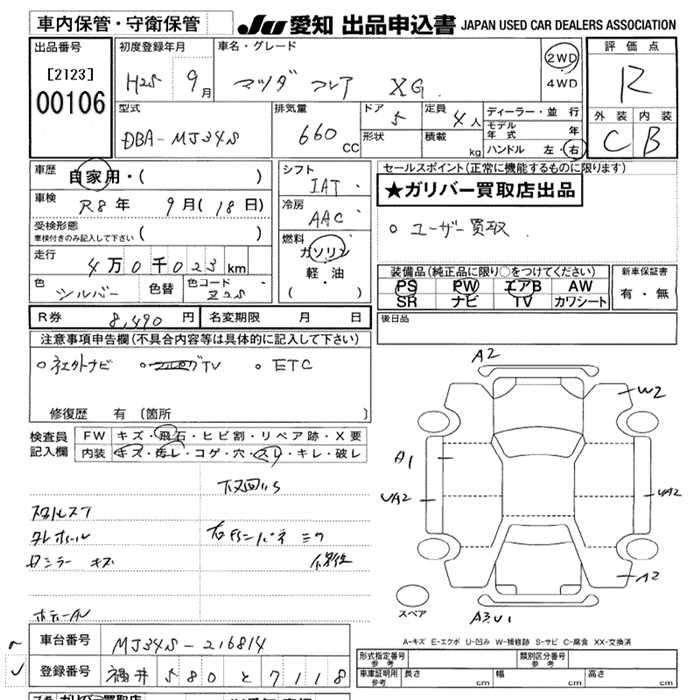 車内保管・守衛保管 JU 愛知 出品申込書 JAPAN USED CAR DEALERS ASSOCIATION
出品番号 初度登録年月 車名・グレード 評価点
[2123] H25 9月 マツダ フレア XG 2WD R
00106 4WD
型式 排気量 ドア 5 定員 4人 ディーラー・並行 外装 内装
DBA-MJ34S 660cc 形状 積載 kg モデル年式 年 C B
ハンドル 左・右
車歴 自家用・( ) シフト セールスポイント(正常に機能するものに限ります)
IAT ★ガリバー買取店出品
車検 R8年 9月(18日) 冷房
AAC 。ユーザー買取
受検形態
車検付きのみ記入して下さい ( ) 燃料
走行 4万0千023km ガソリン
軽・油
( ) 装備品(純正品に限り○をつけてください) 新車保証書
色 シルバー 色替 色コード Z2S PS PW エアB AW 有・無
SR ナビ TV カワシート
R券 8,490円 名変期限 月 日 後日品
注意事項申告欄(不具合内容等は具体的に記入して下さい)
TV ETC
修復歴 有 〔箇所 〕
検査員 FW キズ・飛石・ヒビ割・リペア跡・X要
記入欄 内装 キズ・汚レ・コゲ・穴・スレ・キレ・破レ
A2
W2
A1
UA2
UA2
A2
A3U1
スペア
下回
キズ
A-キズ E-エクボ U-凹み W-補修跡 S-サビ C-腐食 XX-交換済
車台番号 MJ34S-216814 形式指定番号 参考 類別区分番号 参考
登録番号 福井580と7118 車庫証明用 参考 長さ cm 幅 cm 高さ cm